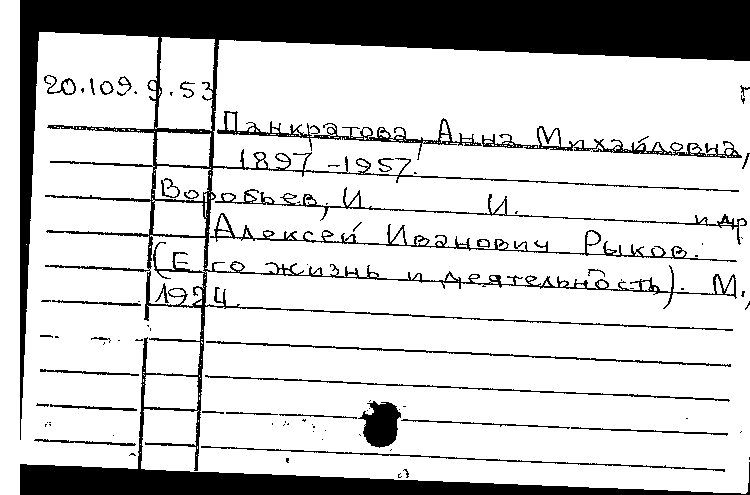 20.109.9.53
Панкратова, Анна Михайловна,
1897-1957.
Воробьев, И. И. и др
Алексей Иванович Рыков.
(Его жизнь и деятельность). М.,
1924.